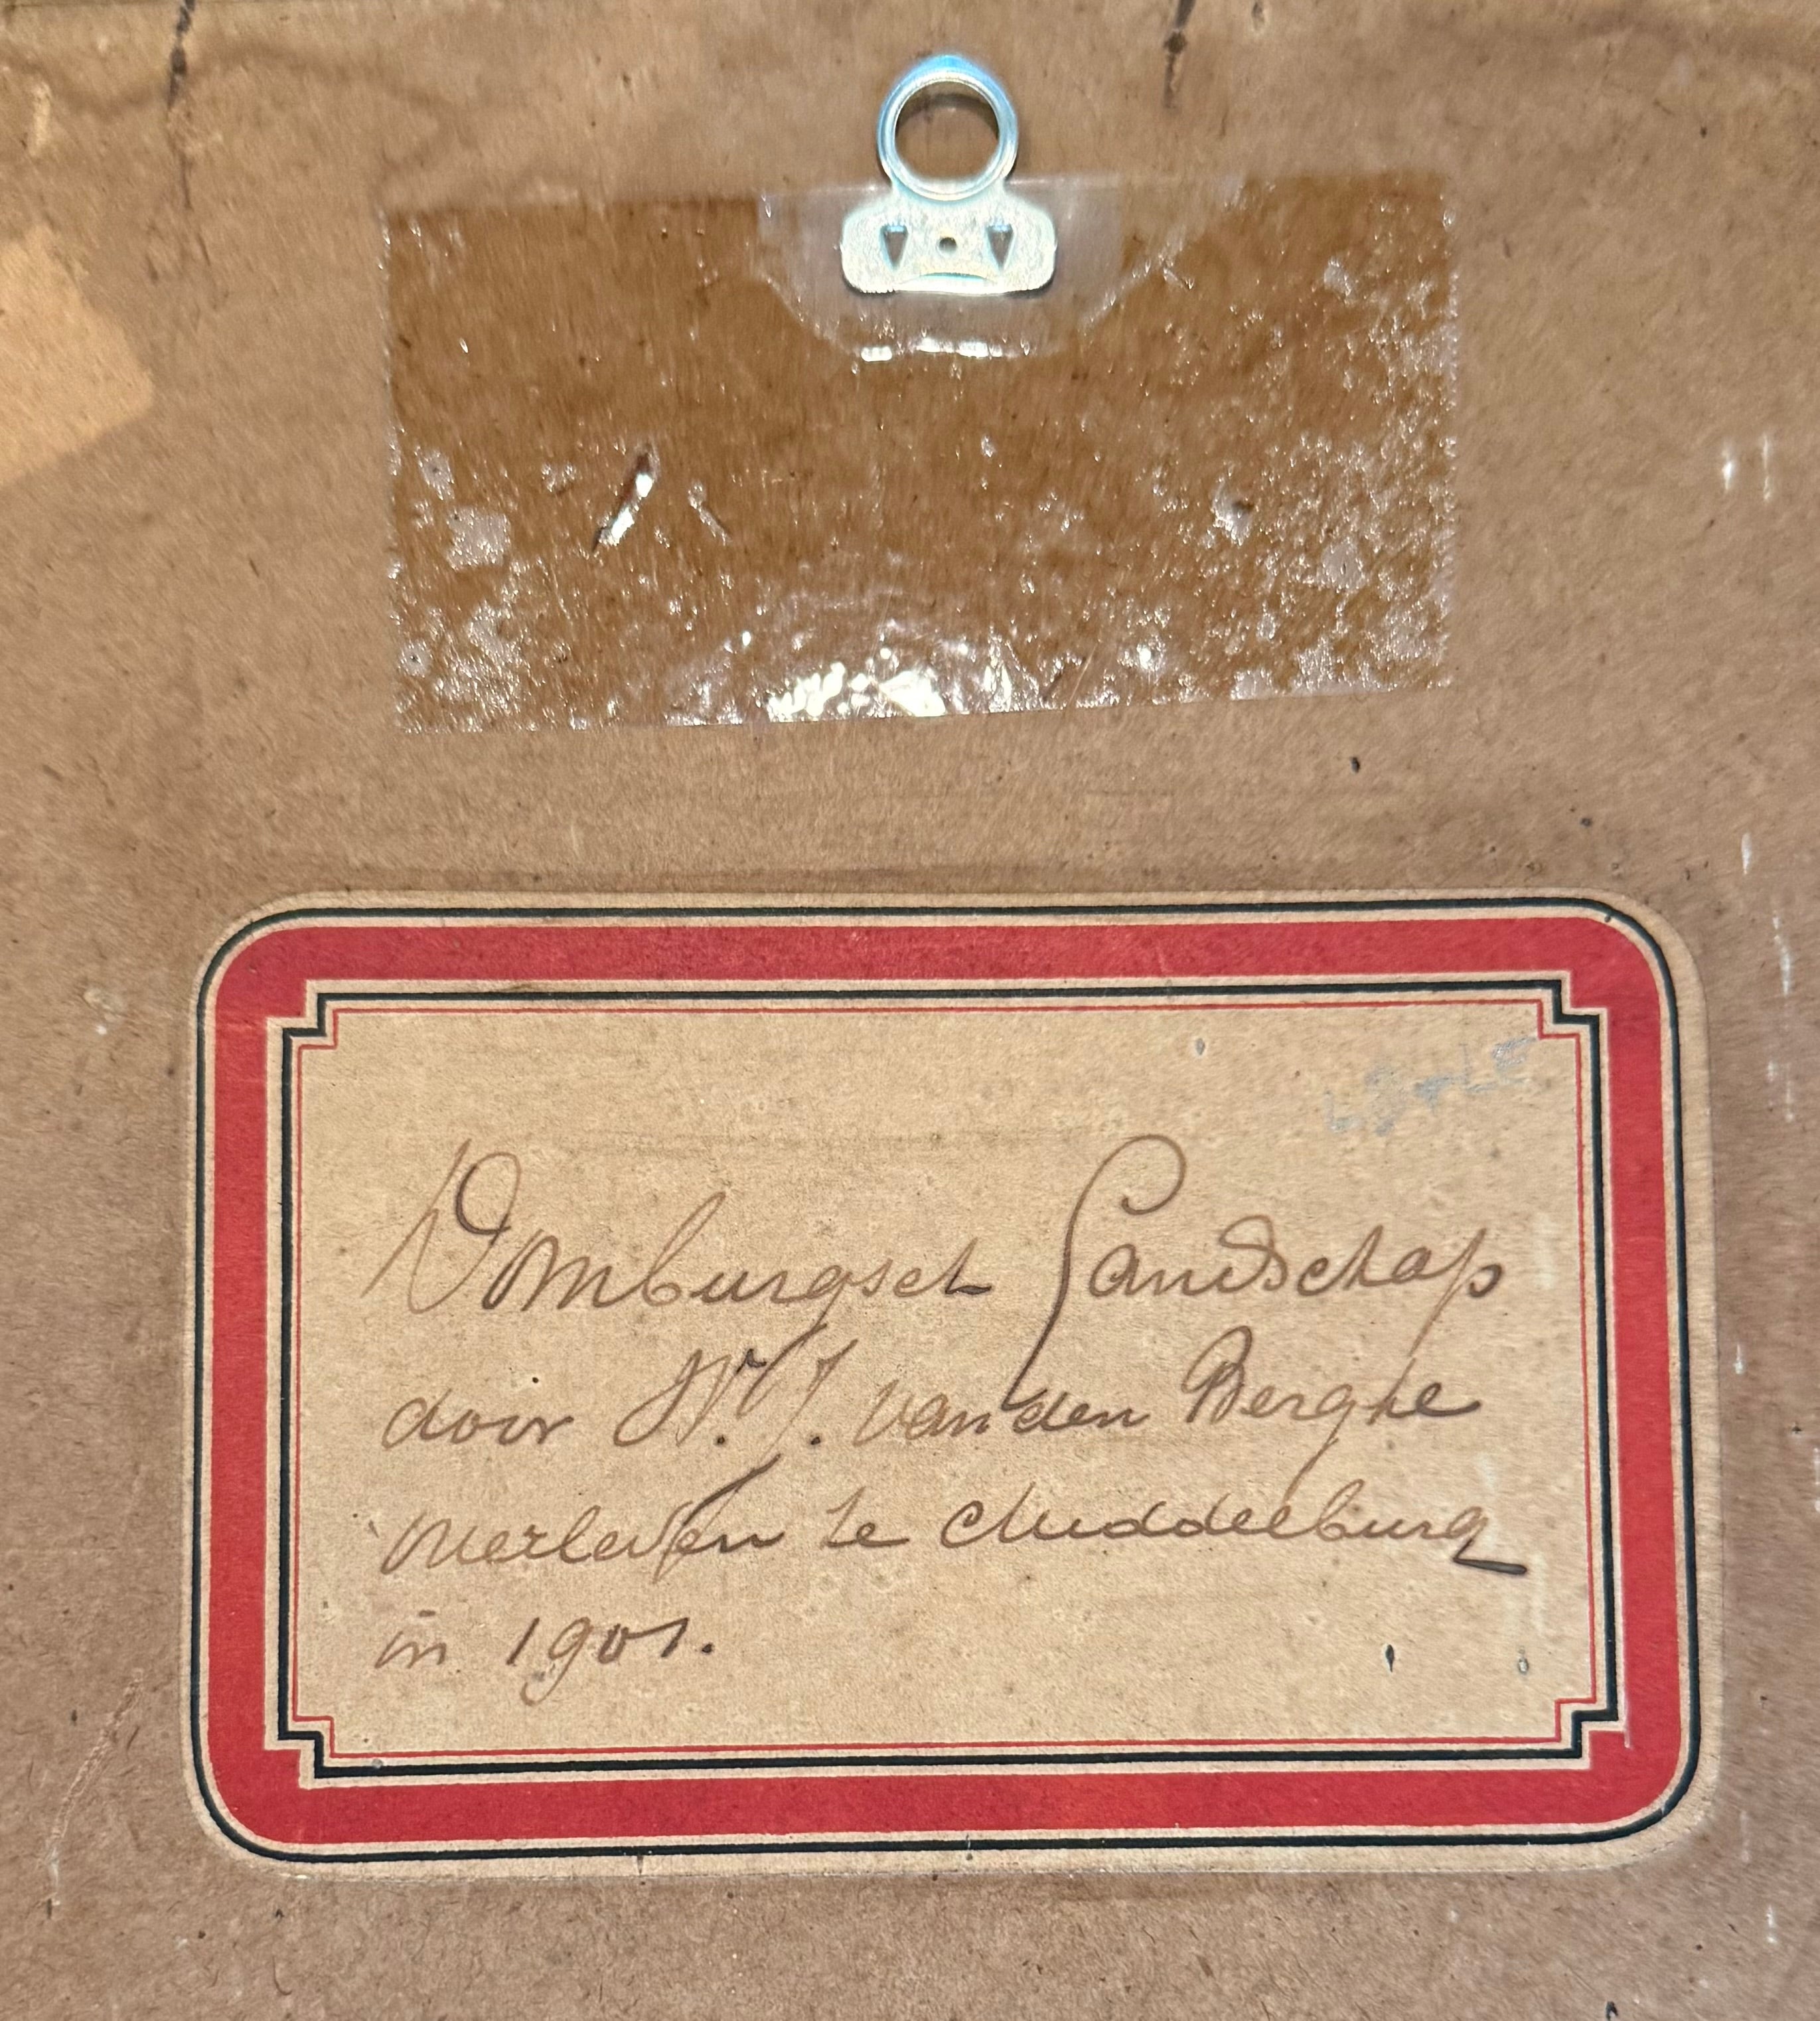 Domburgsch Landschap
door W.J. van den Berghe
overleden te Middelburg
in 1901.